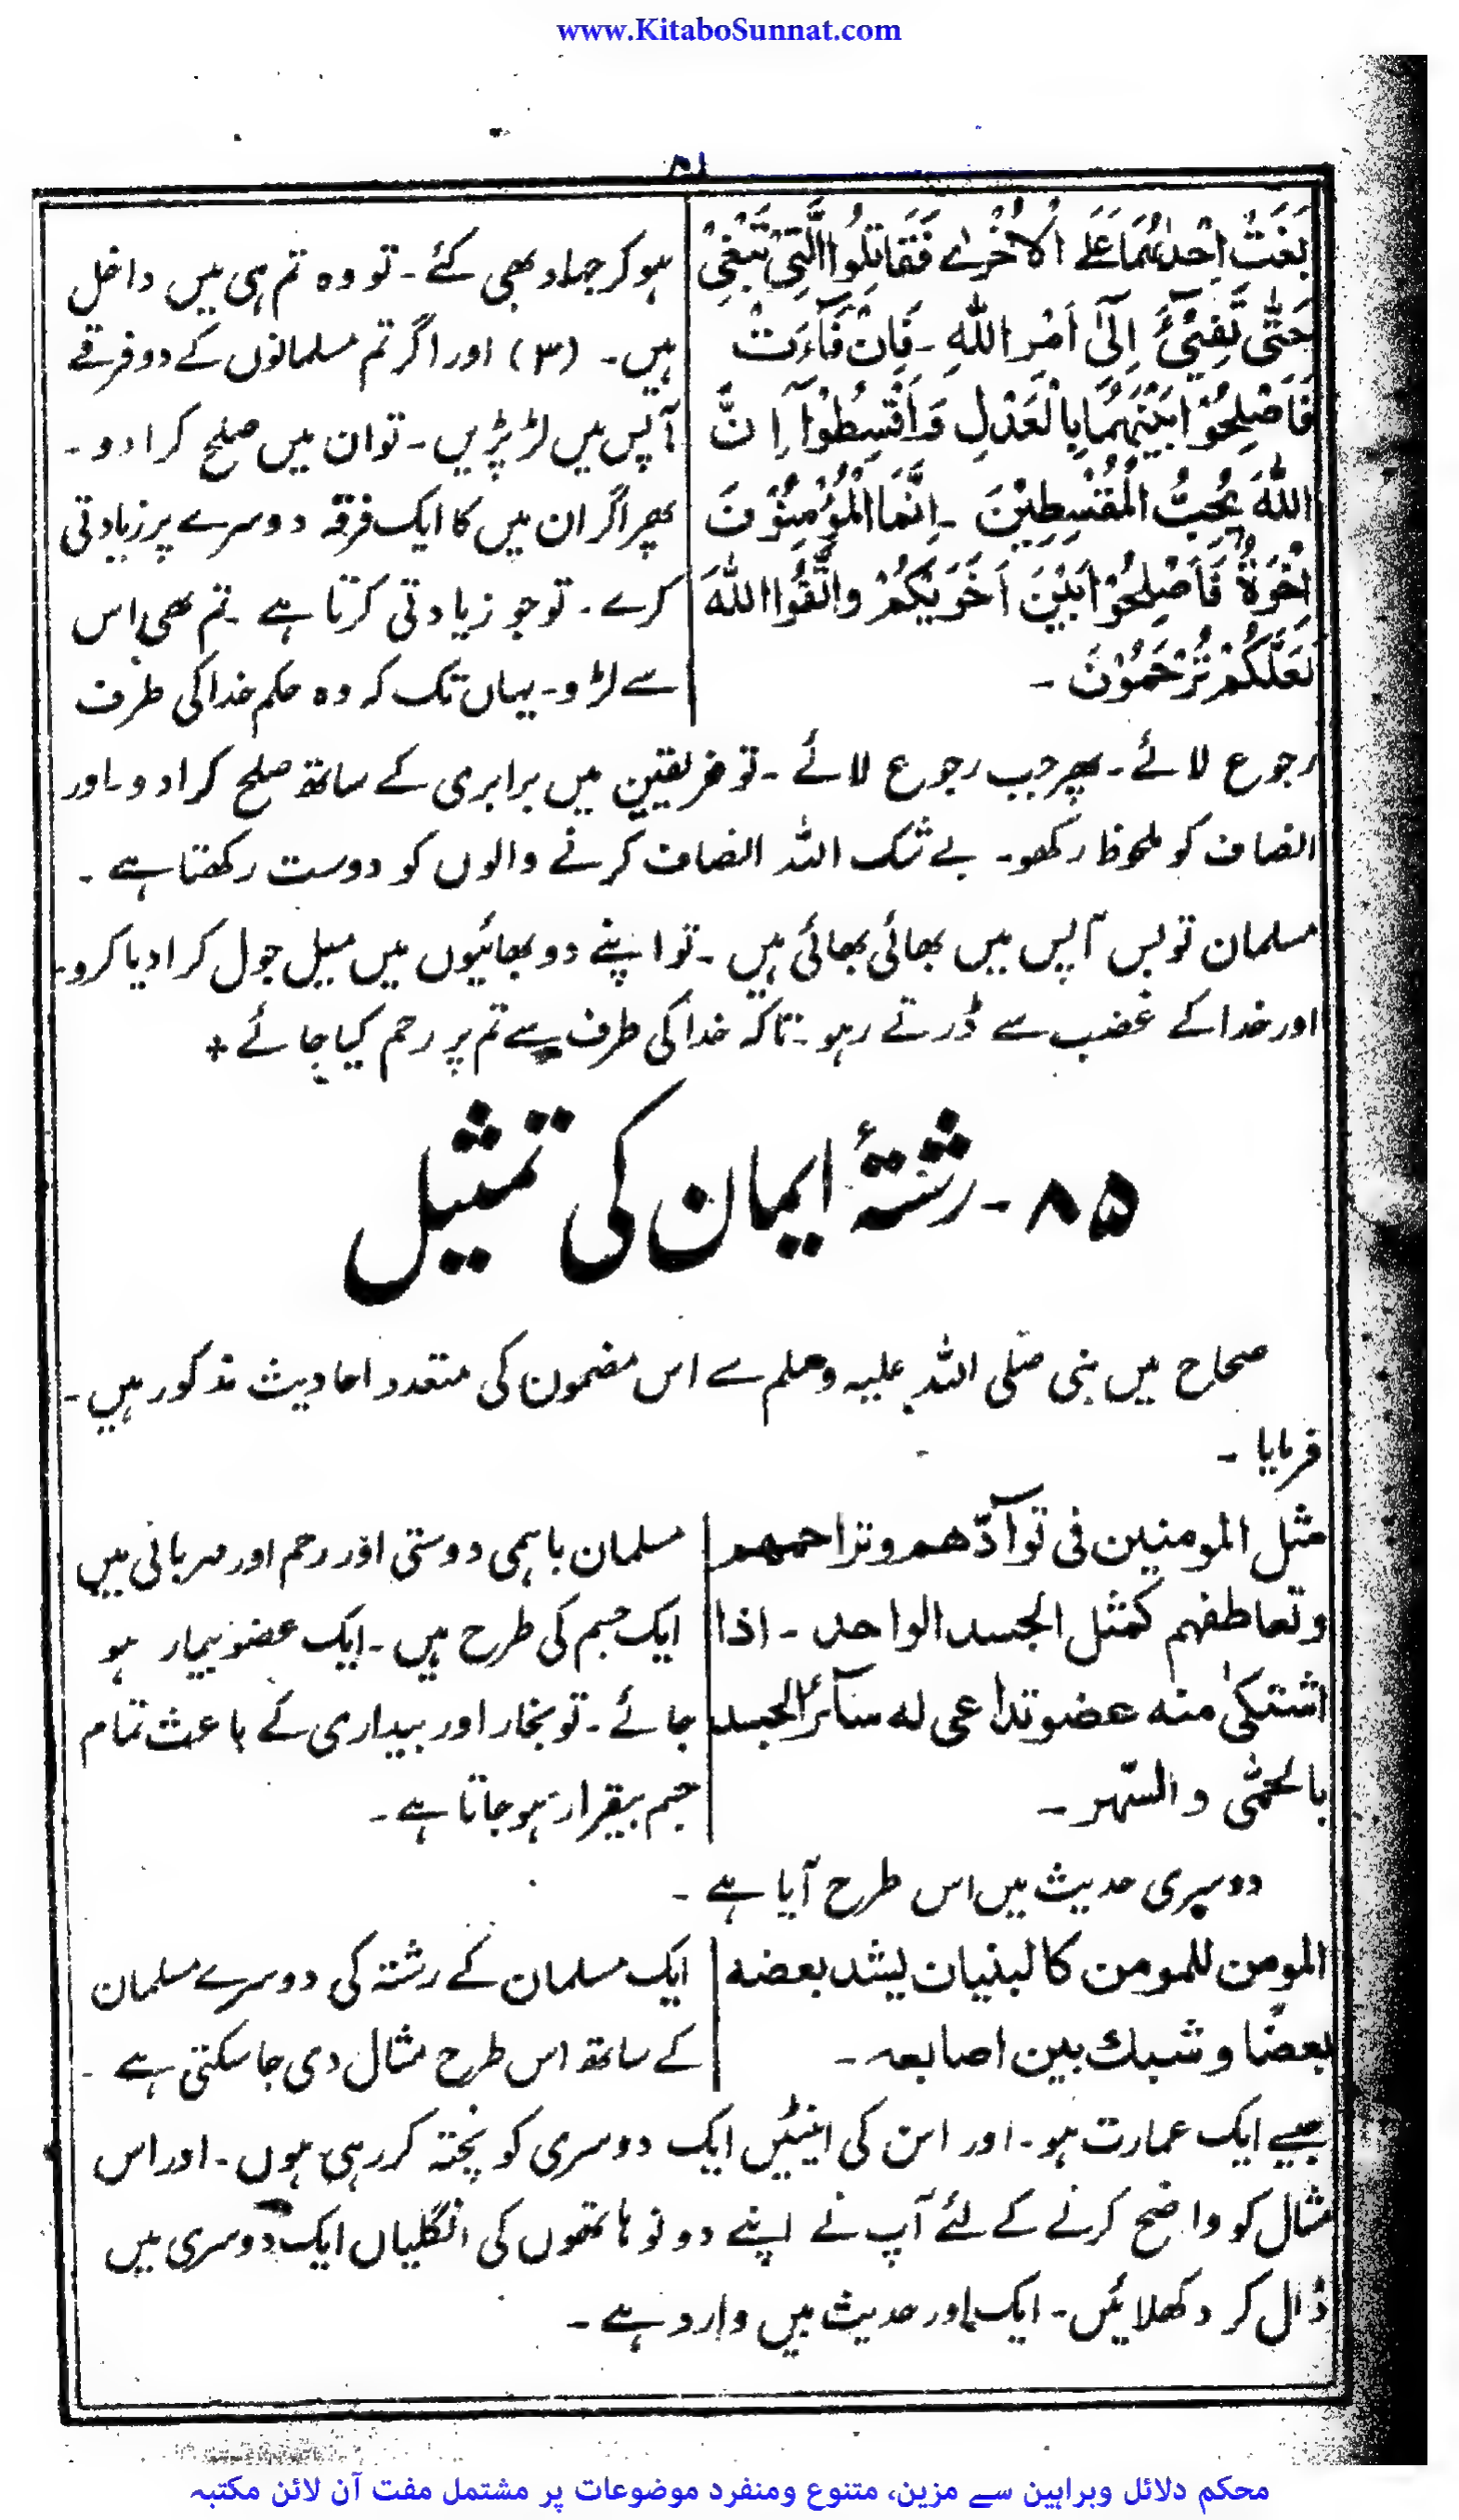 www.KitaboSunnat.com
۸۱
بَغَتْ اِحْدٰىهُمَا عَلَے الْاُخْرٰے فَقَاتِلُوا الَّتِیْ تَبْغِیْ
حَتّٰی تَفِیْٓئَ اِلٰٓی اَمْرِ اللّٰهِ ۔ فَاِنْ فَآءَتْ
فَاَصْلِحُوْا بَیْنَهُمَا بِالْعَدْلِ وَاَقْسِطُوْآ اِنَّ
اللّٰهَ یُحِبُّ الْمُقْسِطِیْنَ ۔ اِنَّمَا الْمُؤْمِنُوْنَ
اِخْوَةٌ فَاَصْلِحُوْا بَیْنَ اَخَوَیْكُمْ وَاتَّقُوا اللّٰهَ
لَعَلَّكُمْ تُرْحَمُوْنَ ۔
ہو کر جہاد بھی کئے ۔ تو وہ تم ہی میں داخل
ہیں ۔ (۳) اور اگر تم مسلمانوں کے دو فرقے
آپس میں لڑ پڑیں ۔ تو ان میں صلح کرا دو ۔
پھر اگر ان میں کا ایک فرقہ دوسرے پر زیادتی
کرے ۔ تو جو زیادتی کرتا ہے ۔ تم بھی اس
سے لڑو ۔ یہاں تک کہ وہ حکم خدا کی طرف
رجوع لائے ۔ پھر جب رجوع لائے ۔ تو فریقین میں برابری کے ساتھ صلح کرا دو ۔ اور
انصاف کو ملحوظ رکھو ۔ بے شک اللہ انصاف کرنے والوں کو دوست رکھتا ہے ۔
مسلمان تو بس آپس میں بھائی بھائی ہیں ۔ تو اپنے دو بھائیوں میں میل جول کرا دیا کرو ۔
اور خدا کے غضب سے ڈرتے رہو ۔ تاکہ خدا کی طرف سے تم پر رحم کیا جائے +
۸۵ ۔ رشتۂ ایمان کی تمثیل
صحاح میں نبی صلی اللہ علیہ وسلم سے اس مضمون کی متعدد احادیث مذکور ہیں ۔
فرمایا ۔
مثل المومنین فی توآدّهم وتراحمهم
وتعاطفهم کمثل الجسد الواحد ۔ اذا
اشتکیٰ منه عضو تداعی له سآئر الجسد
بالحمّٰی والسّهر ۔
مسلمان باہمی دوستی اور رحم اور مہربانی میں
ایک جسم کی طرح ہیں ۔ ایک عضو بیمار ہو
جائے ۔ تو بخار اور بیداری کے باعث تمام
جسم بیقرار ہو جاتا ہے ۔
دوسری حدیث میں اس طرح آیا ہے ۔
المومن للمومن کالبنیان یشد بعضه
بعضًا وشبك بین اصابعہ ۔
ایک مسلمان کے رشتہ کی دوسرے مسلمان
کے ساتھ اس طرح مثال دی جا سکتی ہے ۔
جیسے ایک عمارت ہو ۔ اور اس کی اینٹیں ایک دوسری کو پختہ کر رہی ہوں ۔ اور اس
مثال کو واضح کرنے کے لئے آپ نے اپنے دونو ہاتھوں کی انگلیاں ایک دوسری میں
ڈال کر دکھلائیں ۔ ایک اور حدیث میں وارد ہے ۔
محکم دلائل وبراہین سے مزین، متنوع ومنفرد موضوعات پر مشتمل مفت آن لائن مکتبہ